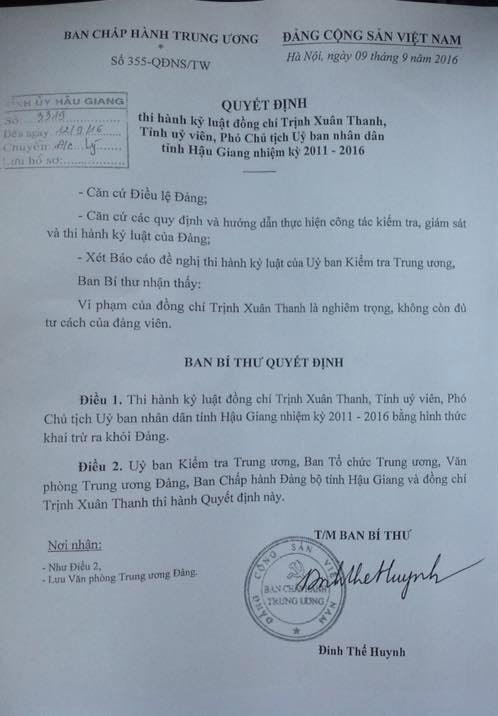 BAN CHẤP HÀNH TRUNG ƯƠNG
ĐẢNG CỘNG SẢN VIỆT NAM
*
Số 355-QĐNS/TW
Hà Nội, ngày 09 tháng 9 năm 2016
TỈNH ỦY HẬU GIANG
Số: 3319
Đến ngày: 12/9/16
Chuyển:
Lưu hồ sơ:
QUYẾT ĐỊNH
thi hành kỷ luật đồng chí Trịnh Xuân Thanh,
Tỉnh uỷ viên, Phó Chủ tịch Uỷ ban nhân dân
tỉnh Hậu Giang nhiệm kỳ 2011 - 2016
- Căn cứ Điều lệ Đảng;
- Căn cứ các quy định và hướng dẫn thực hiện công tác kiểm tra, giám sát
và thi hành kỷ luật của Đảng;
- Xét Báo cáo đề nghị thi hành kỷ luật của Uỷ ban Kiểm tra Trung ương,
Ban Bí thư nhận thấy:
Vi phạm của đồng chí Trịnh Xuân Thanh là nghiêm trọng, không còn đủ
tư cách của đảng viên.
BAN BÍ THƯ QUYẾT ĐỊNH
Điều 1. Thi hành kỷ luật đồng chí Trịnh Xuân Thanh, Tỉnh uỷ viên, Phó
Chủ tịch Uỷ ban nhân dân tỉnh Hậu Giang nhiệm kỳ 2011 - 2016 bằng hình thức
khai trừ ra khỏi Đảng.
Điều 2. Uỷ ban Kiểm tra Trung ương, Ban Tổ chức Trung ương, Văn
phòng Trung ương Đảng, Ban Chấp hành Đảng bộ tỉnh Hậu Giang và đồng chí
Trịnh Xuân Thanh thi hành Quyết định này.
Nơi nhận:
- Như Điều 2,
- Lưu Văn phòng Trung ương Đảng.
T/M BAN BÍ THƯ
ĐẢNG CỘNG SẢN VIỆT NAM
BAN CHẤP HÀNH
TRUNG ƯƠNG
ĐinhTheHuynh
Đinh Thế Huynh